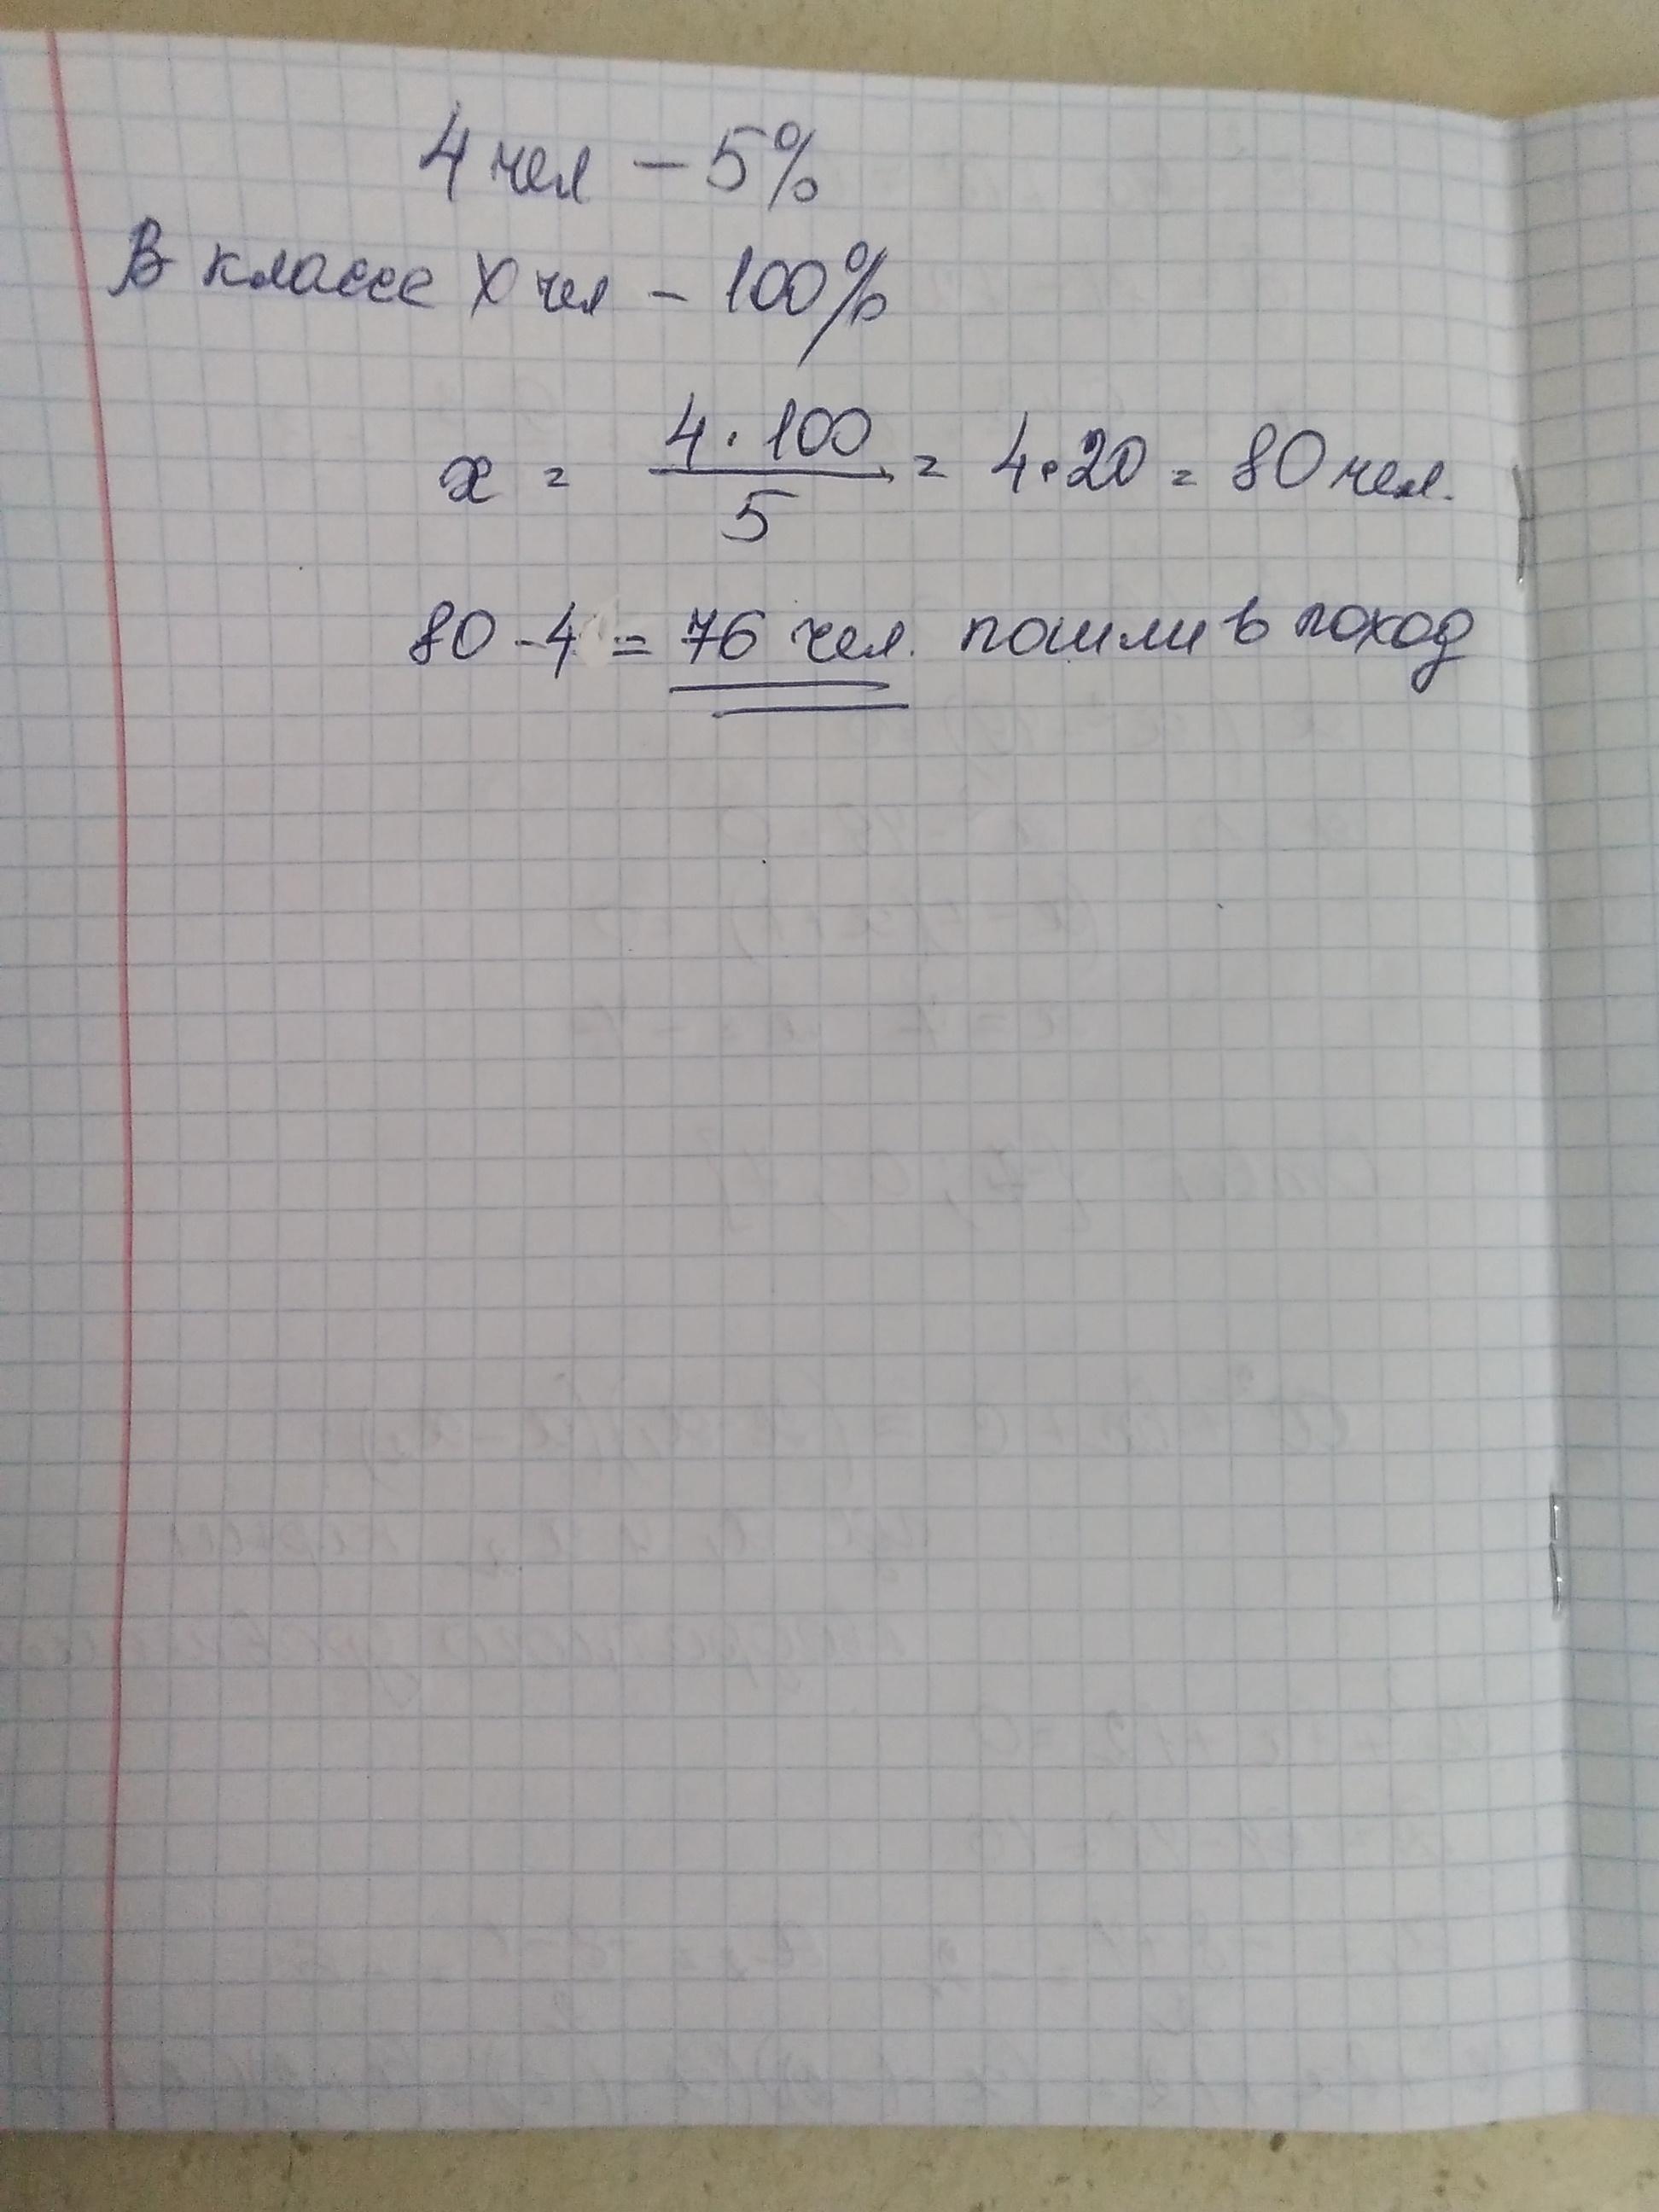 4 чел – 5%
В классе х чел – 100%
x = 4 · 100 / 5 = 4 · 20 = 80 чел.
80 – 4 = 76 чел. пошли в поход